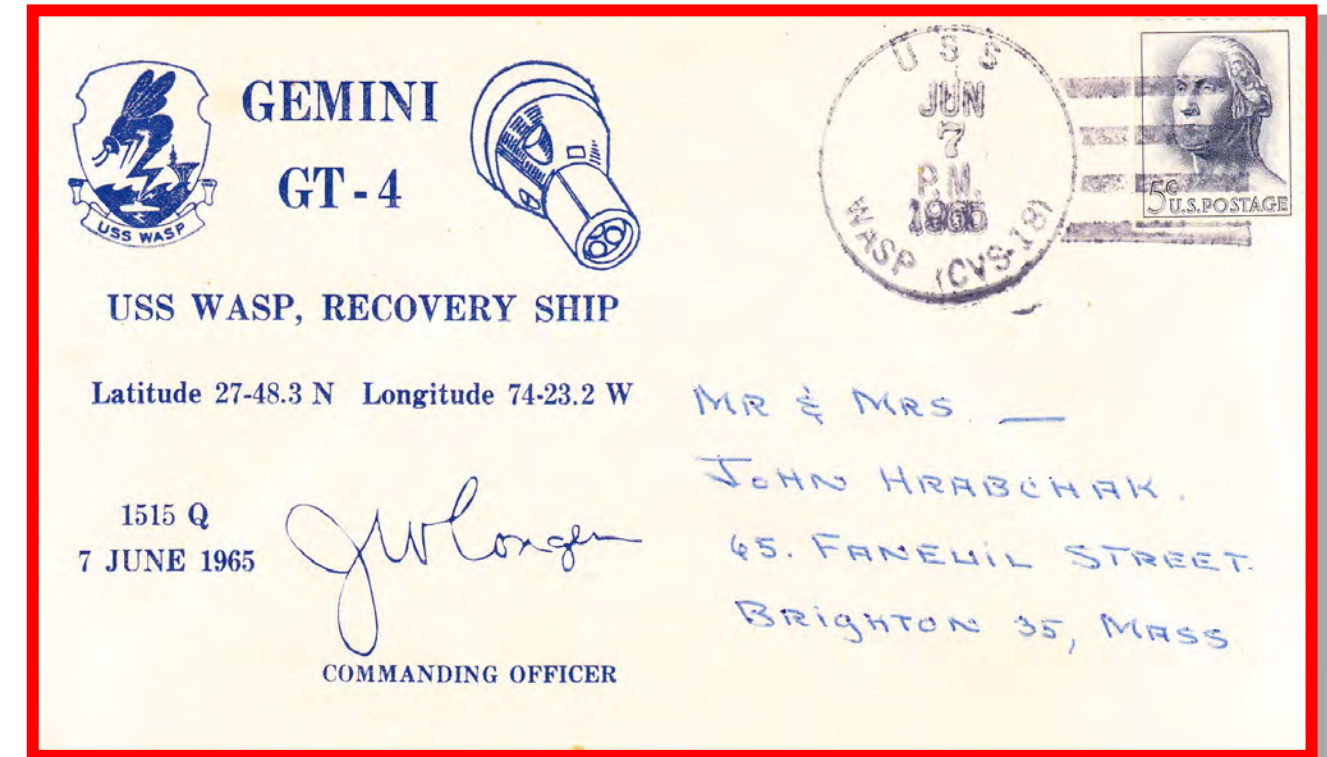 USS WASP
GEMINI
GT-4
USS WASP, RECOVERY SHIP
Latitude 27-48.3 N Longitude 74-23.2 W
1515 Q
7 JUNE 1965
COMMANDING OFFICER
USS
JUN
7
P.M.
1965
WASP (CVS-18)
5¢
U.S. POSTAGE
MR & MRS. —
JOHN HRABCHAK.
65. FANEUIL STREET.
BRIGHTON 35, MASS